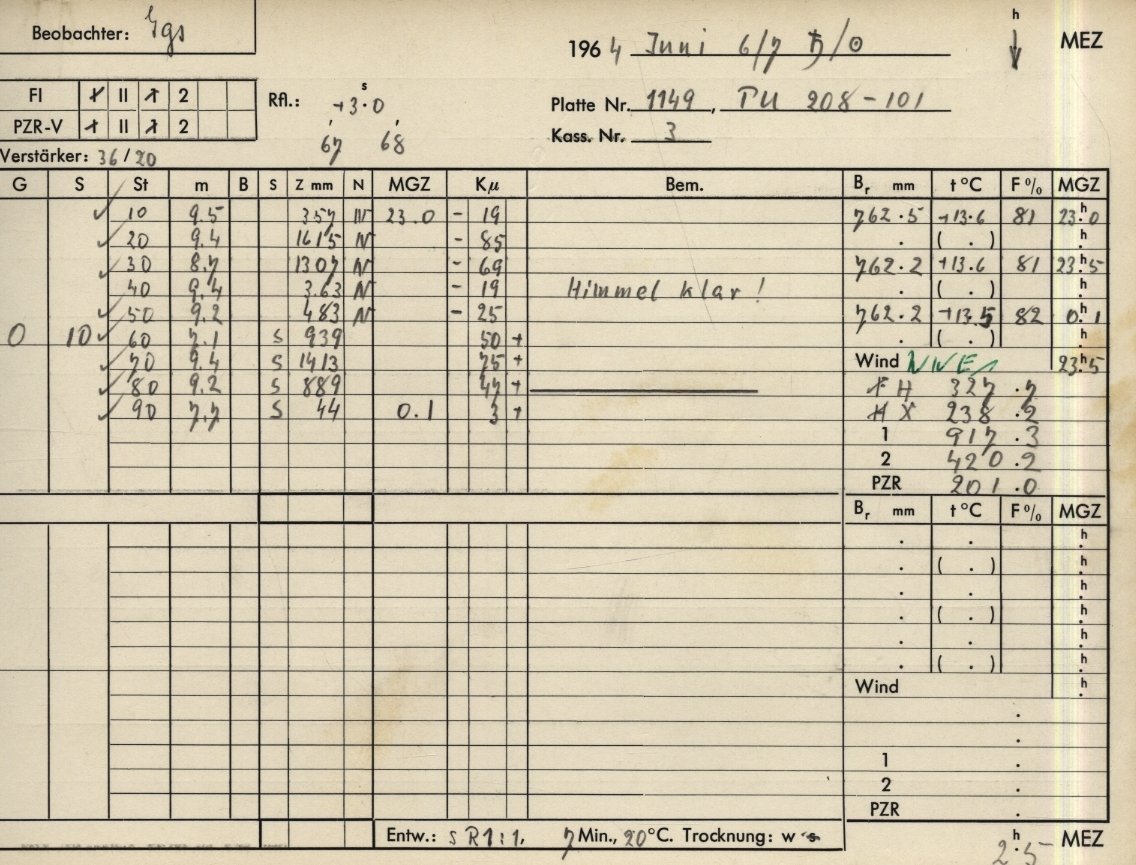 Beobachter: Ygs
1964 Juni 6/7 ♄/☉ h MEZ
FI I II 1 2
PZR-V 1 II 1 2
Rfl.: +3.0 s
67 68
Platte Nr. 1149, PU 208-101
Kass. Nr. 3
Verstärker: 36/20
G S St m B S Z mm N MGZ Kμ Bem. Br mm t °C F % MGZ
10 9.5 357 N 23.0 - 19 762.5 +13.6 81 23.h0
20 9.4 1615 N - 85 . ( . ) h.
30 8.7 1307 N - 69 762.2 +13.6 81 23.h5
40 9.4 363 N - 19 Himmel klar! . ( . ) h.
50 9.2 483 N - 25 762.2 +13.5 82 0.h1
0 10 60 7.1 S 939 50 + . ( . ) h.
70 9.4 S 1413 75 + Wind NNE 1 23.h5
80 9.2 S 889 47 + FH 327.7
90 7.7 S 44 0.1 3 + HX 238.2
1 917.3
2 420.2
PZR 201.0
Br mm t °C F % MGZ
. . h.
. ( . ) h.
. . h.
. ( . ) h.
. . h.
. ( . ) h.
Wind h.
.
.
1 .
2 .
PZR .
Entw.: s R 1:1, 7 Min., 20°C. Trocknung: w s 2.h5 MEZ